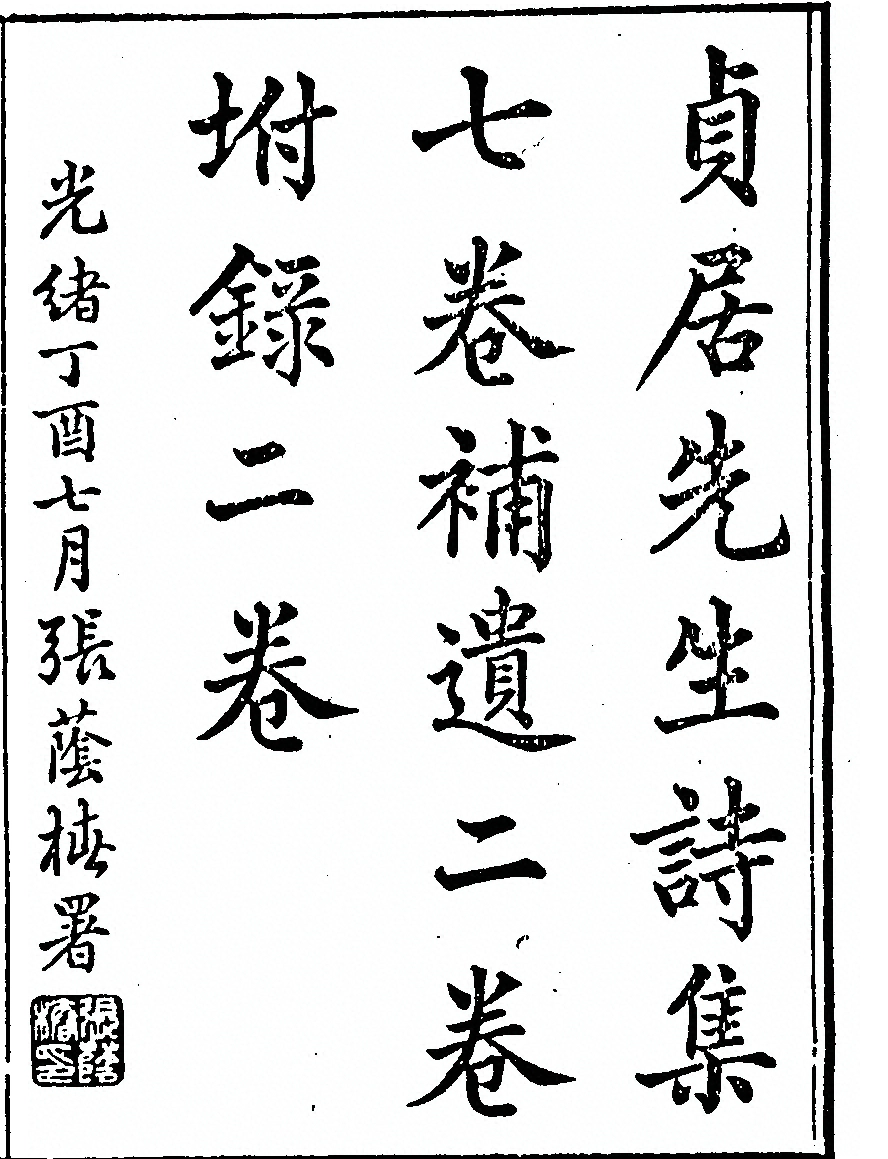 貞居先生詩集
七卷補遺二卷
坿錄二卷
光緒丁酉七月張蔭椿署
張蔭椿印